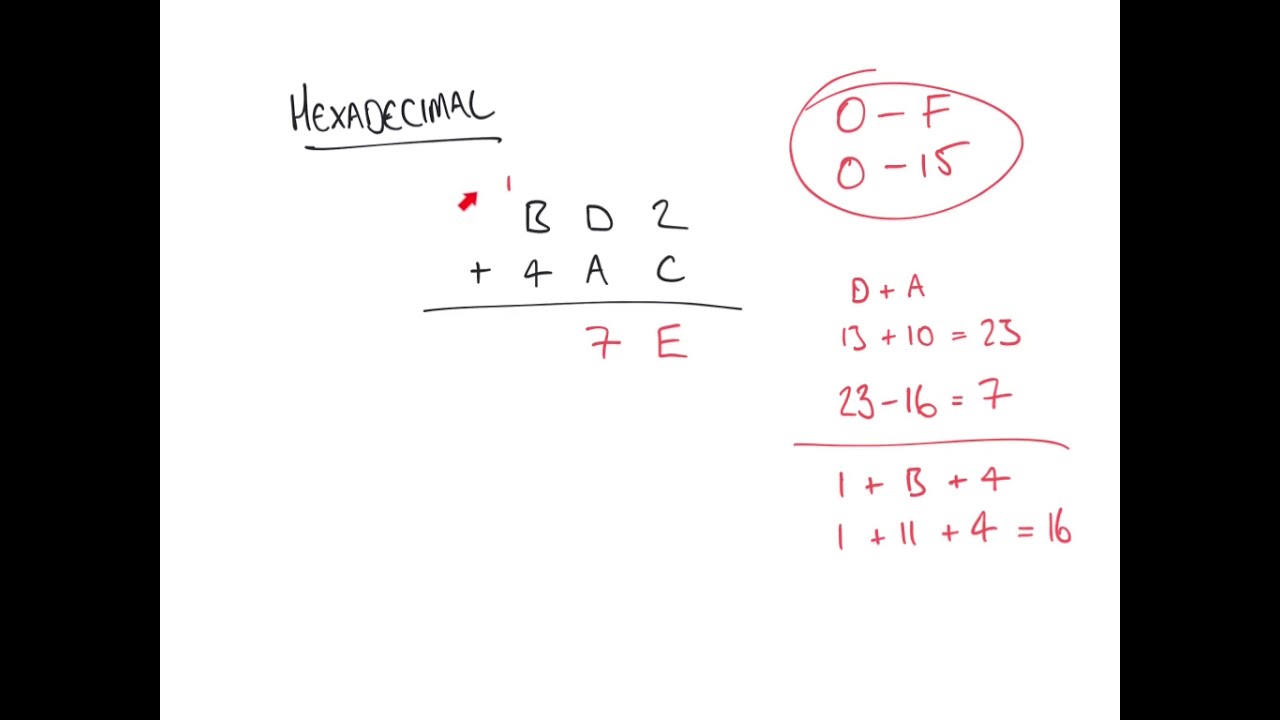 HEXADECIMAL
1
B D 2
+ 4 A C
7 E
0 - F
0 - 15
D + A
13 + 10 = 23
23 - 16 = 7
1 + B + 4
1 + 11 + 4 = 16